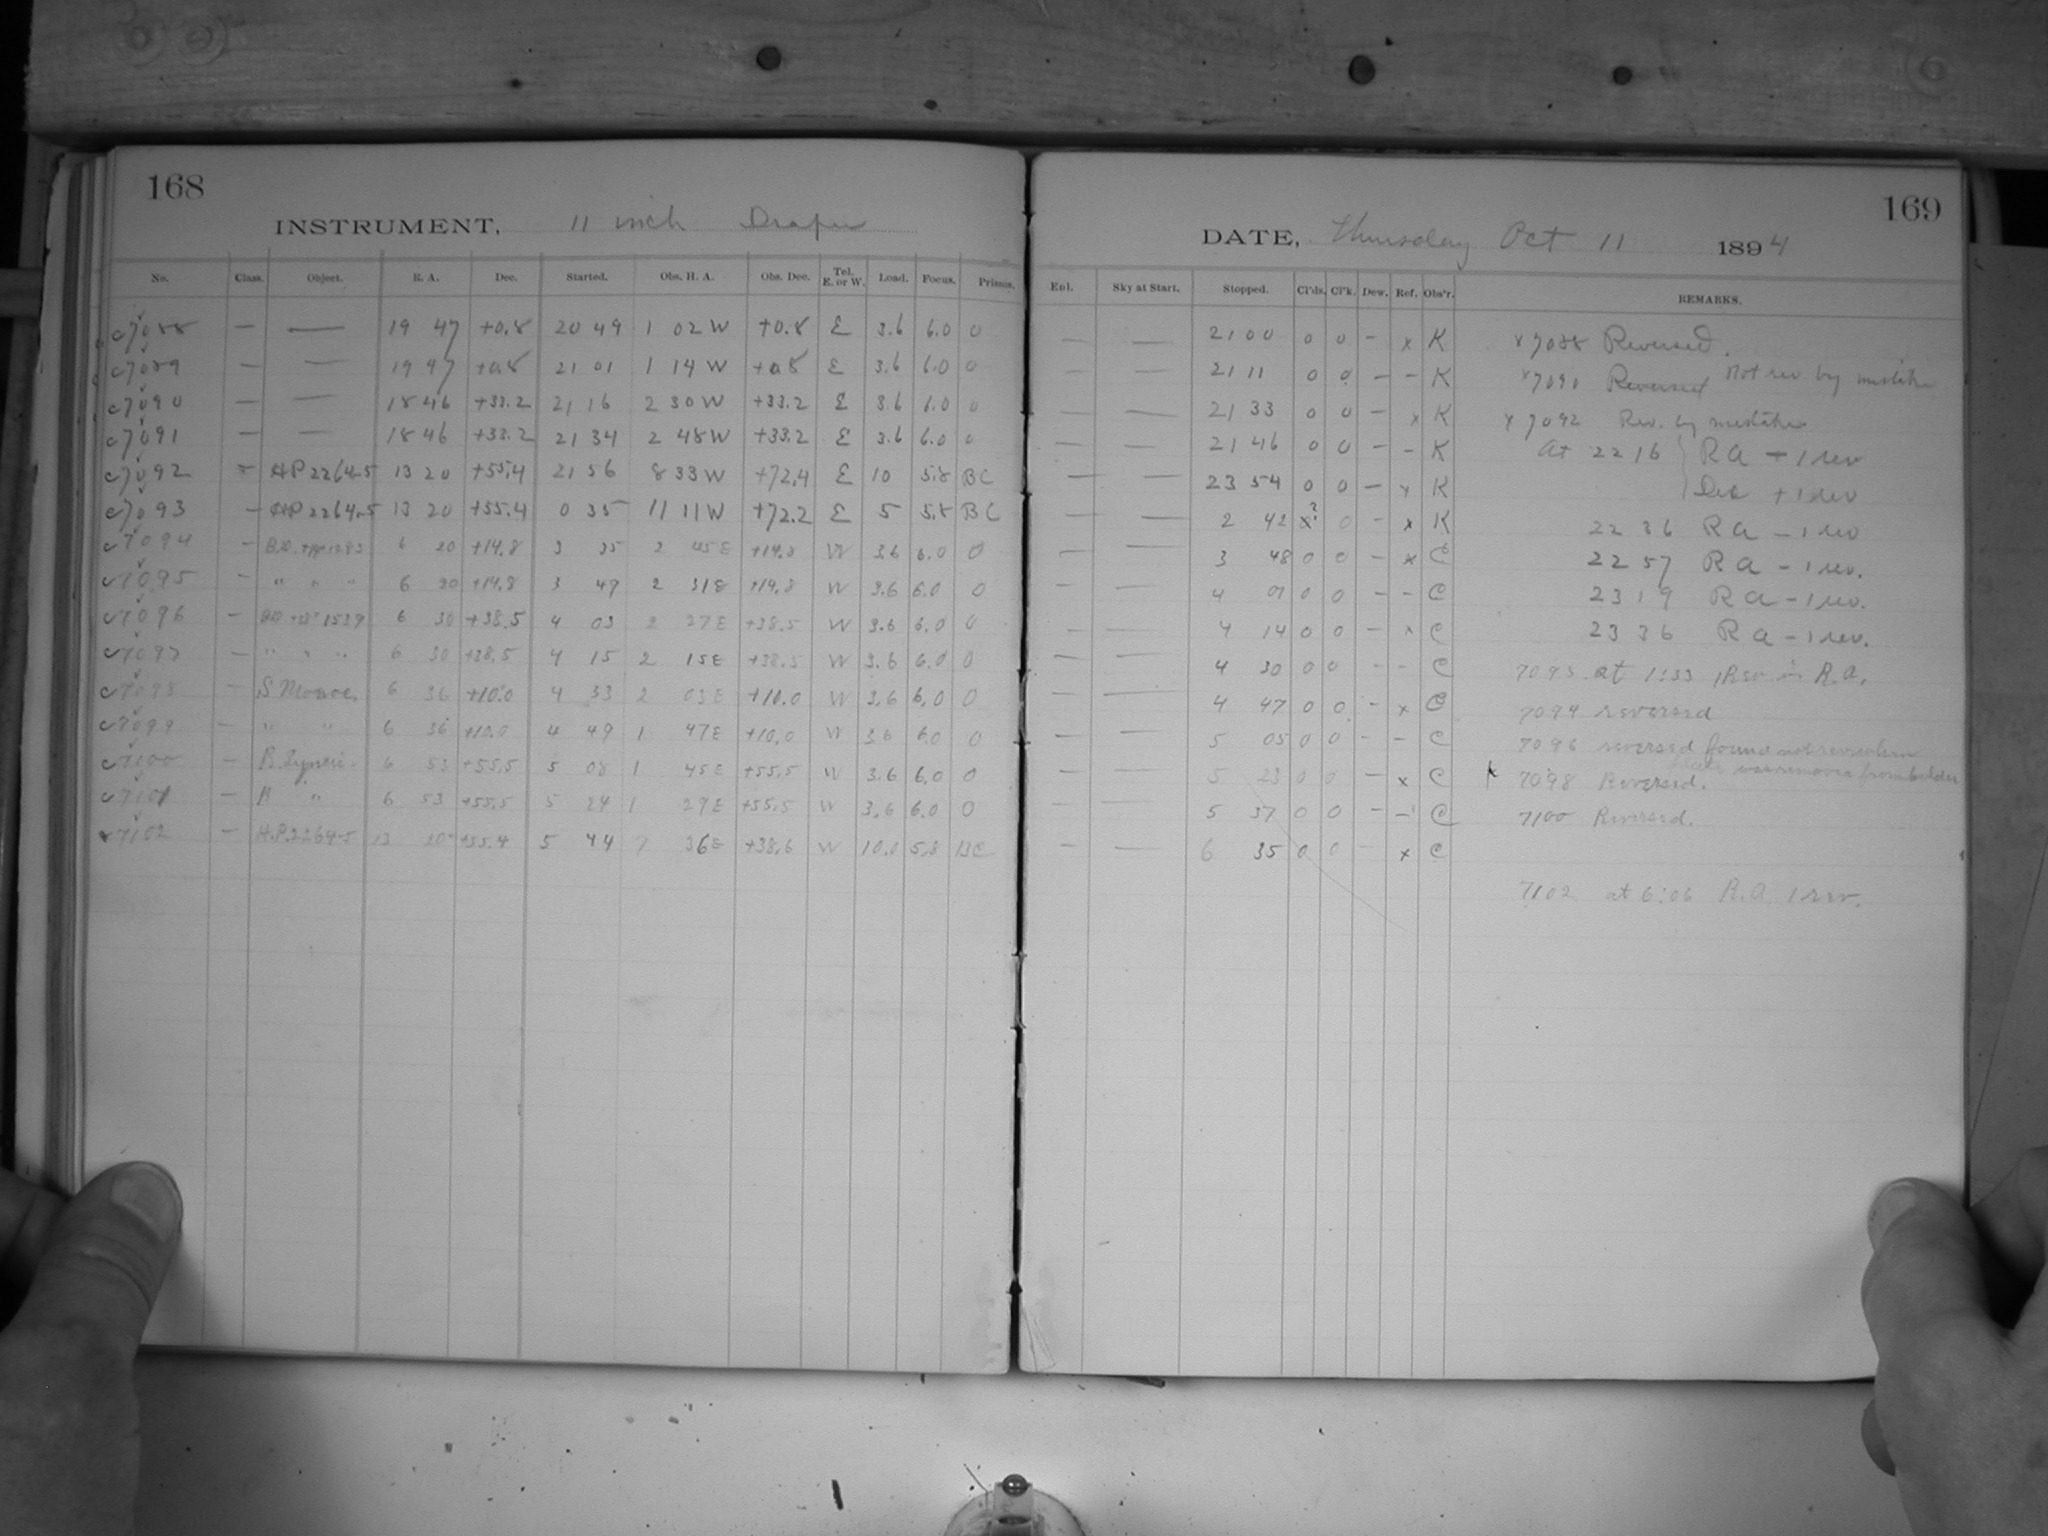 168
INSTRUMENT, 11 inch Draper
No. Class. Object. R. A. Dec. Started. Obs. H. A. Obs. Dec. Tel. E. or W. Load. Focus. Prisms.
c7088 — — 19 47 +0.8 20 49 1 02 W +0.8 E 3.6 6.0 0
c7089 — — 19 47 +0.8 21 01 1 14 W +0.8 E 3.6 6.0 0
c7090 — — 18 46 +33.2 21 16 2 30 W +33.2 E 3.6 6.0 0
c7091 — — 18 46 +33.2 21 34 2 48 W +33.2 E 3.6 6.0 0
c7092 — H.P. 2264-5 13 20 +55.4 21 56 8 33 W +72.4 E 10 5.8 BC
c7093 — H.P. 2264-5 13 20 +55.4 0 35 11 11 W +72.2 E 5 5.8 BC
c7094 — 6 20 +14.8 3 35 2 45 E +14.8 W 3.6 6.0 0
c7095 — " " " 6 20 +14.8 3 49 2 31 E +14.8 W 3.6 6.0 0
c7096 — 6 30 +38.5 4 03 2 27 E +38.5 W 3.6 6.0 0
c7097 — " " " 6 30 +38.5 4 15 2 15 E +38.5 W 3.6 6.0 0
c7098 — S Monoc. 6 36 +10.0 4 33 2 03 E +10.0 W 3.6 6.0 0
c7099 — " " 6 36 +10.0 4 49 1 47 E +10.0 W 3.6 6.0 0
c7100 — R. Lyncis 6 53 +55.5 5 08 1 45 E +55.5 W 3.6 6.0 0
c7101 — R " 6 53 +55.5 5 24 1 29 E +55.5 W 3.6 6.0 0
c7102 — H.P. 2264-5 13 20 +55.4 5 44 7 36 E +38.6 W 10.0 5.8 BC
169
DATE, Thursday Oct 11 1894
Enl. Sky at Start. Stopped. Cl'ds. Cl'k. Dew. Ref. Obs'r. REMARKS.
— — 21 00 0 0 — x K x 7088 Reversed.
— — 21 11 0 0 — — K x 7091 Reversed Not rev by mistake
— — 21 33 0 0 — x K x 7092 Rev. by mistake
— — 21 46 0 0 — — K At 22 16 { R A + 1 rev
— — 23 54 0 0 — x K Dec + 1 rev
— — 2 42 x? 0 — x K 22 36 R A — 1 rev
— — 3 48 0 0 — x C 22 57 R A — 1 rev.
— — 4 01 0 0 — — C 23 19 R A — 1 rev.
— — 4 14 0 0 — x C 23 36 R A — 1 rev.
— — 4 30 0 0 — — C 7093 at 1:33 1 Rev. in R.A.
— — 4 47 0 0 — x C 7094 reversed
— — 5 05 0 0 — — C 7096 reversed found not rev. when
plate was removed from holder
— — 5 23 0 0 — x C x 7098 Reversed.
— — 5 37 0 0 — — C 7100 Reversed.
— — 6 35 0 0 — x C
7102 at 6:06 R.A. 1 rev.